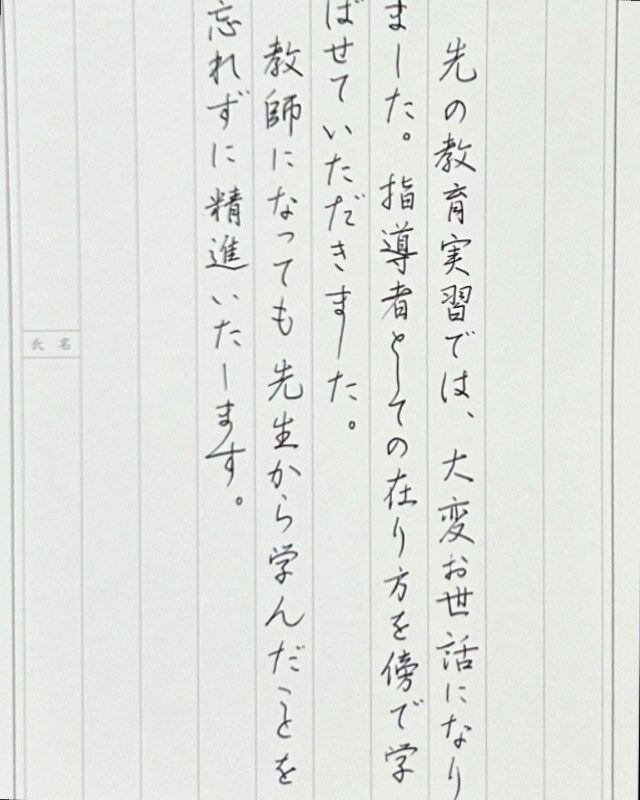 先の教育実習では、大変お世話になり
ました。指導者としての在り方を傍で学
ばせていただきました。
教師になっても先生から学んだことを
忘れずに精進いたします。
氏名